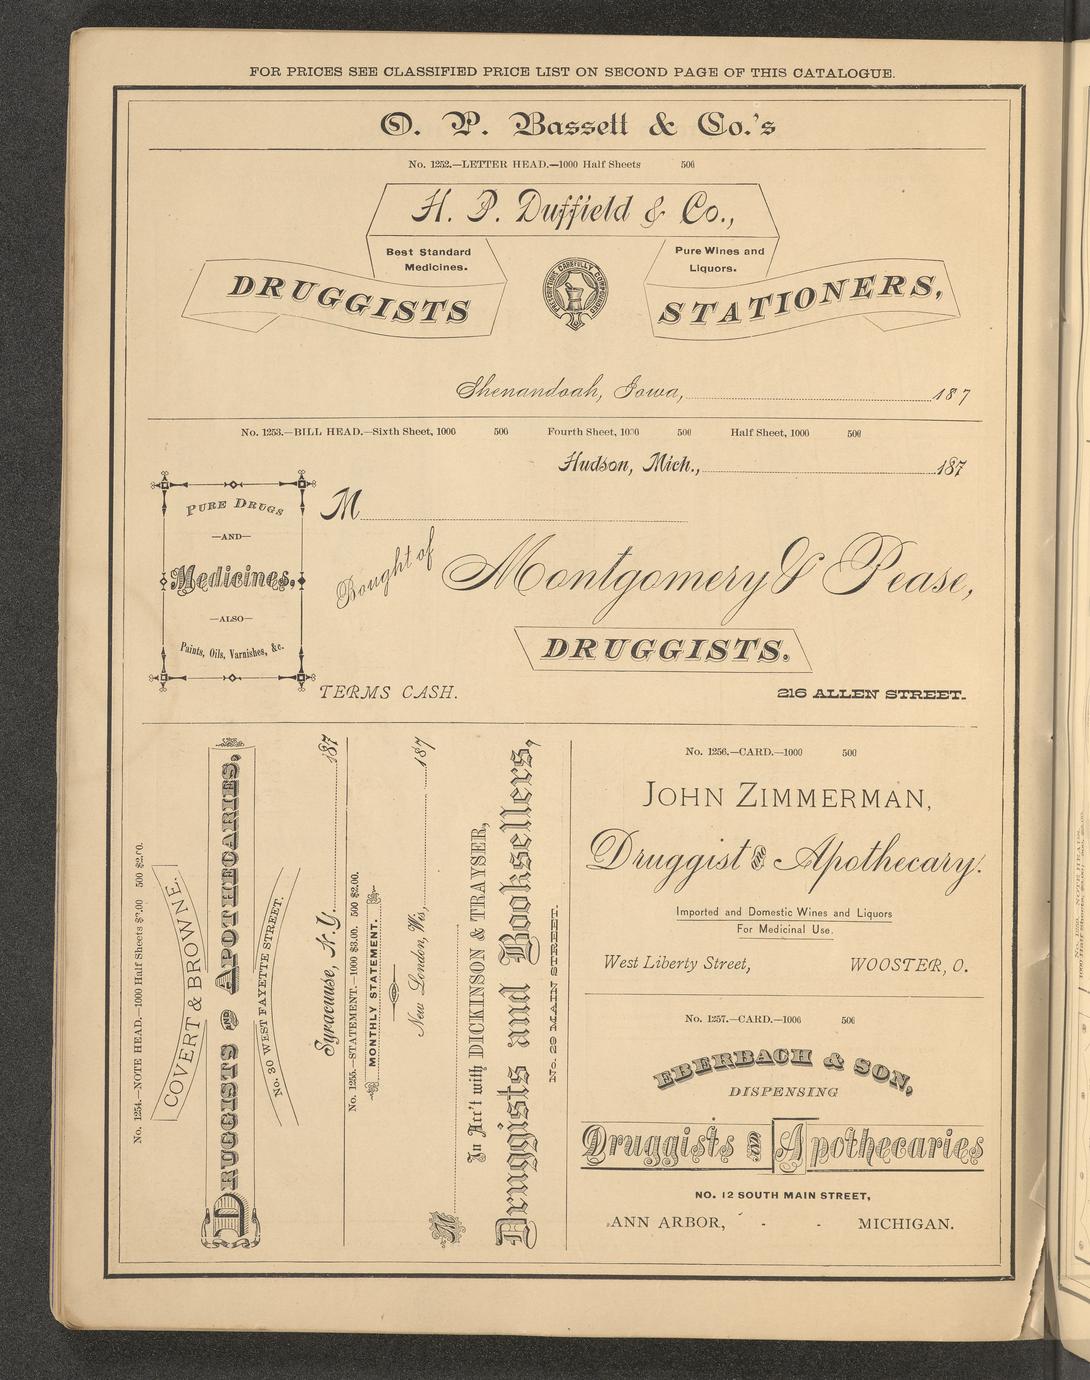 FOR PRICES SEE CLASSIFIED PRICE LIST ON SECOND PAGE OF THIS CATALOGUE.
O. P. Bassett & Co.'s
No. 1252.—LETTER HEAD.—1000 Half Sheets 500
H. P. Duffield & Co.,
Best Standard Medicines.
Pure Wines and Liquors.
DRUGGISTS
PRESCRIPTIONS CAREFULLY COMPOUNDED
STATIONERS,
Shenandoah, Iowa, 187
No. 1253.—BILL HEAD.—Sixth Sheet, 1000 500 Fourth Sheet, 1000 500 Half Sheet, 1000 500
Hudson, Mich., 187
PURE DRUGS
—AND—
Medicines,
—ALSO—
Paints, Oils, Varnishes, &c.
M
Bought of Montgomery & Pease,
DRUGGISTS.
TERMS CASH.
216 ALLEN STREET.
No. 1254.—NOTE HEAD.—1000 Half Sheets 500 $2.00.
COVERT & BROWNE.
DRUGGISTS AND APOTHECARIES,
No. 30 WEST FAYETTE STREET.
Syracuse, N.Y. 187
No. 1255.—STATEMENT.—1000 $3.00. 500 $2.00.
MONTHLY STATEMENT.
New London, Wis., 187
M
In Acc't with DICKINSON & TRAYSER,
Druggists and Booksellers,
No. 29 MAIN STREET.
No. 1256.—CARD.—1000 500
JOHN ZIMMERMAN,
Druggist and Apothecary.
Imported and Domestic Wines and Liquors
For Medicinal Use.
West Liberty Street, WOOSTER, O.
No. 1257.—CARD.—1000 500
EBERBACH & SON,
DISPENSING
Druggists and Apothecaries
NO. 12 SOUTH MAIN STREET,
ANN ARBOR, - - MICHIGAN.